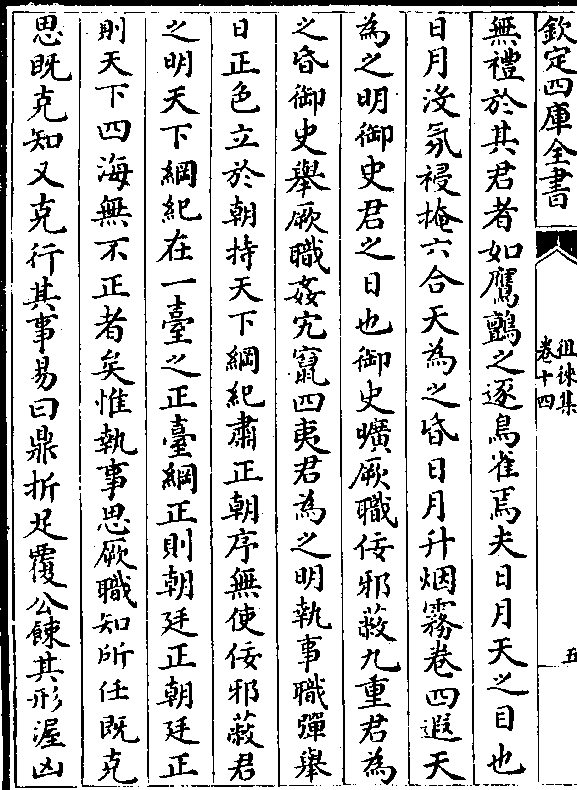 欽定四庫全書
徂徠集
卷十四
五
無禮於其君者如鷹鸇之逐鳥雀焉夫日月天之目也
日月沒氛祲掩六合天為之昏日月升烟霧卷四遐天
為之明御史君之日也御史曠厥職佞邪蔽九重君為
之昏御史舉厥職姦宄竄四夷君為之明執事職彈舉
日正色立於朝持天下綱紀肅正朝序無使佞邪蔽君
之明天下綱紀在一臺之正臺綱正則朝廷正朝廷正
則天下四海無不正者矣惟執事思厥職知所任既克
思既克知又克行其事易曰鼎折足覆公餗其形渥凶